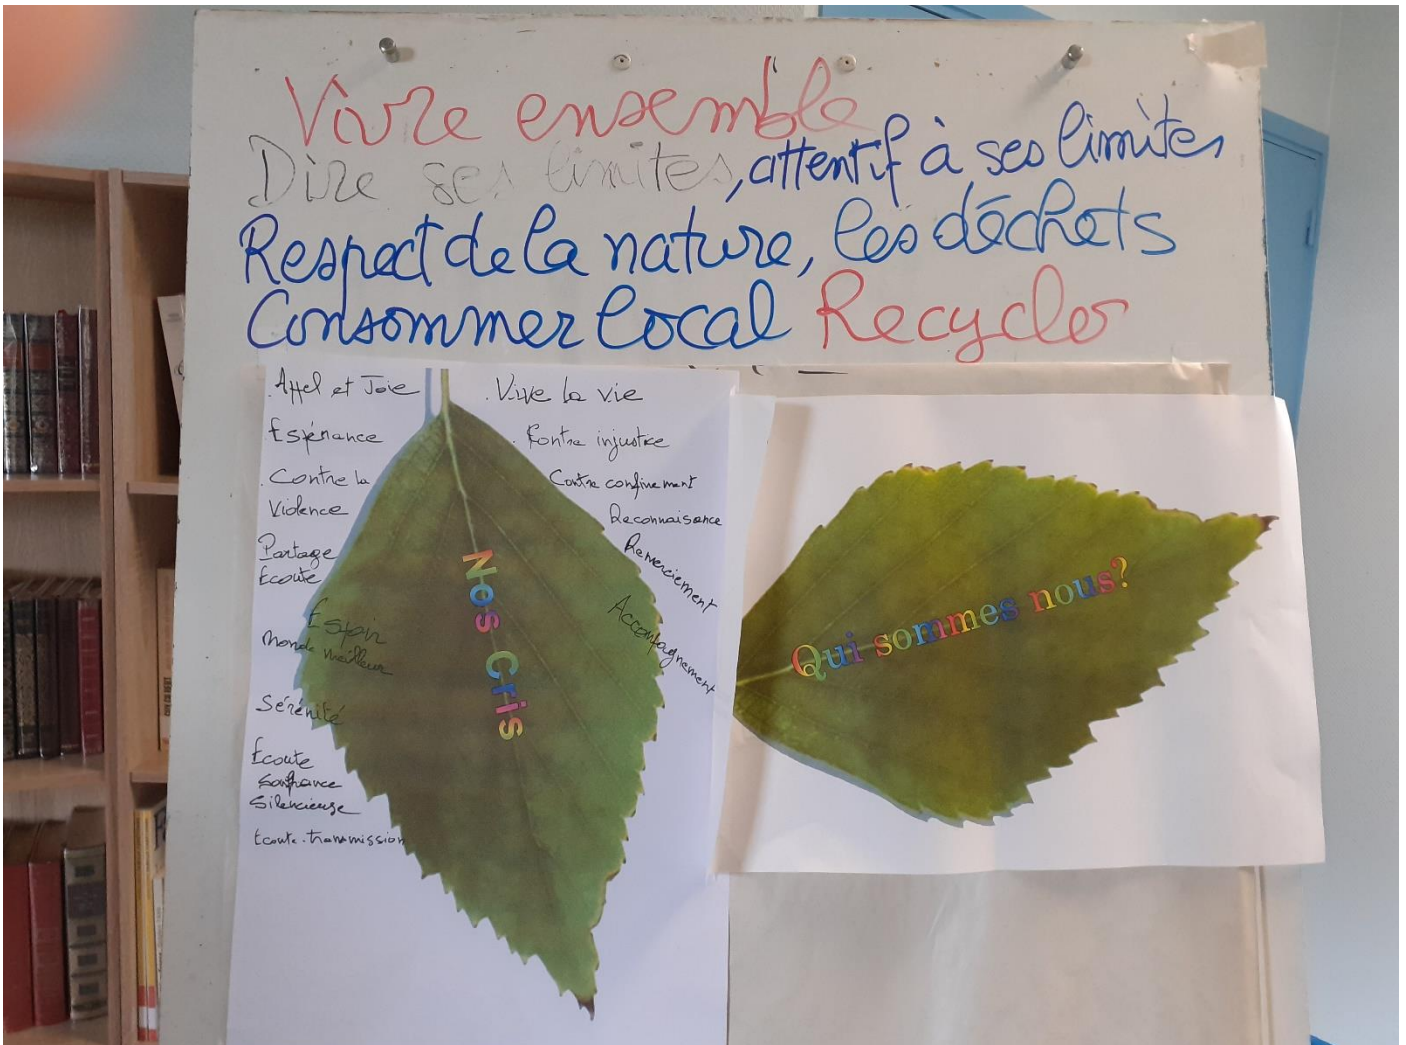 Vivre ensemble
Dire ses limites, attentif à ses limites
Respect de la nature, les déchets
Consommer local Recycler
. Appel et Joie
Espérance
. Contre la
Violence
Partage
Ecoute
Espoir
monde meilleur
Sérénité
Ecoute
Souffrance
Silencieuse
Ecoute. transmission
. Vive la vie
. Contre injustice
Contre confinement
Reconnaisance
Remerciement
Accompagnement
Nos Cris
Qui sommes nous?